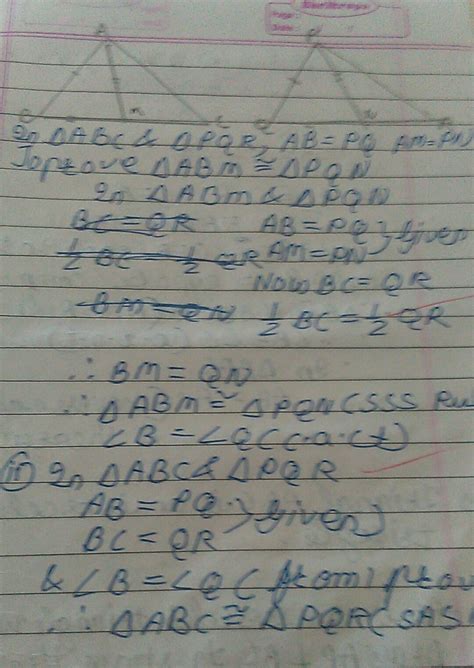 A
B M C
Q N R
In △ABC & △PQR, AB = PQ AM = PN
To prove △ABM ≅ △PQN
In △ABM & △PQN
BC = QR AB = PQ } given
½ BC = ½ QR AM = PN
Now BC = QR
BM = QN ½ BC = ½ QR
∴ BM = QN
∴ △ABM ≅ △PQN (SSS Ru
∠B = ∠Q (c.a.ct)
(ii) In △ABC & △PQR
AB = PQ } given)
BC = QR
& ∠B = ∠Q (from i prov
∴ △ABC ≅ △PQR (SAS